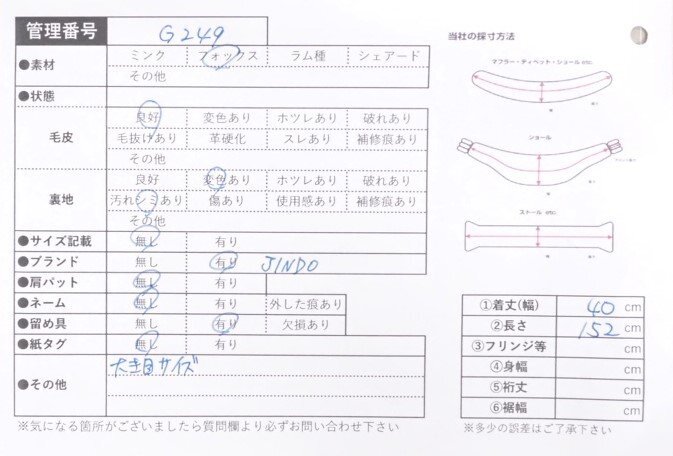 管理番号 G249
●素材 ミンク フォックス ラム種 シェアード
その他
●状態
毛皮 良好 変色あり ホツレあり 破れあり
毛抜けあり 革硬化 スレあり 補修痕あり
その他
裏地 良好 変色あり ホツレあり 破れあり
汚れシミあり 傷あり 使用感あり 補修痕あり
その他
●サイズ記載 無し 有り
●ブランド 無し 有り JINDO
●肩パット 無し 有り
●ネーム 無し 有り 外した痕あり
●留め具 無し 有り 欠損あり
●紙タグ 無し 有り
●その他 大き目サイズ
※気になる箇所がございましたら質問欄より必ずお問い合わせ下さい
当社の採寸方法
マフラー・ティペット・ショール etc.
ショール
ストール etc.
①着丈(幅) 40 cm
②長さ 152 cm
③フリンジ等 cm
④身幅 cm
⑤裄丈 cm
⑥裾幅 cm
※多少の誤差はご了承下さい